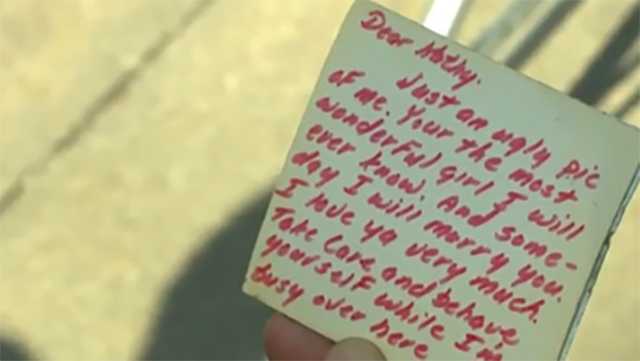 Dear Kathy.
Just an ugly pic
of me. Your the most
wonderful girl I will
ever know. And some-
day I will marry you.
I love ya very much.
Take Care and behave
yourself while I'm
busy over here